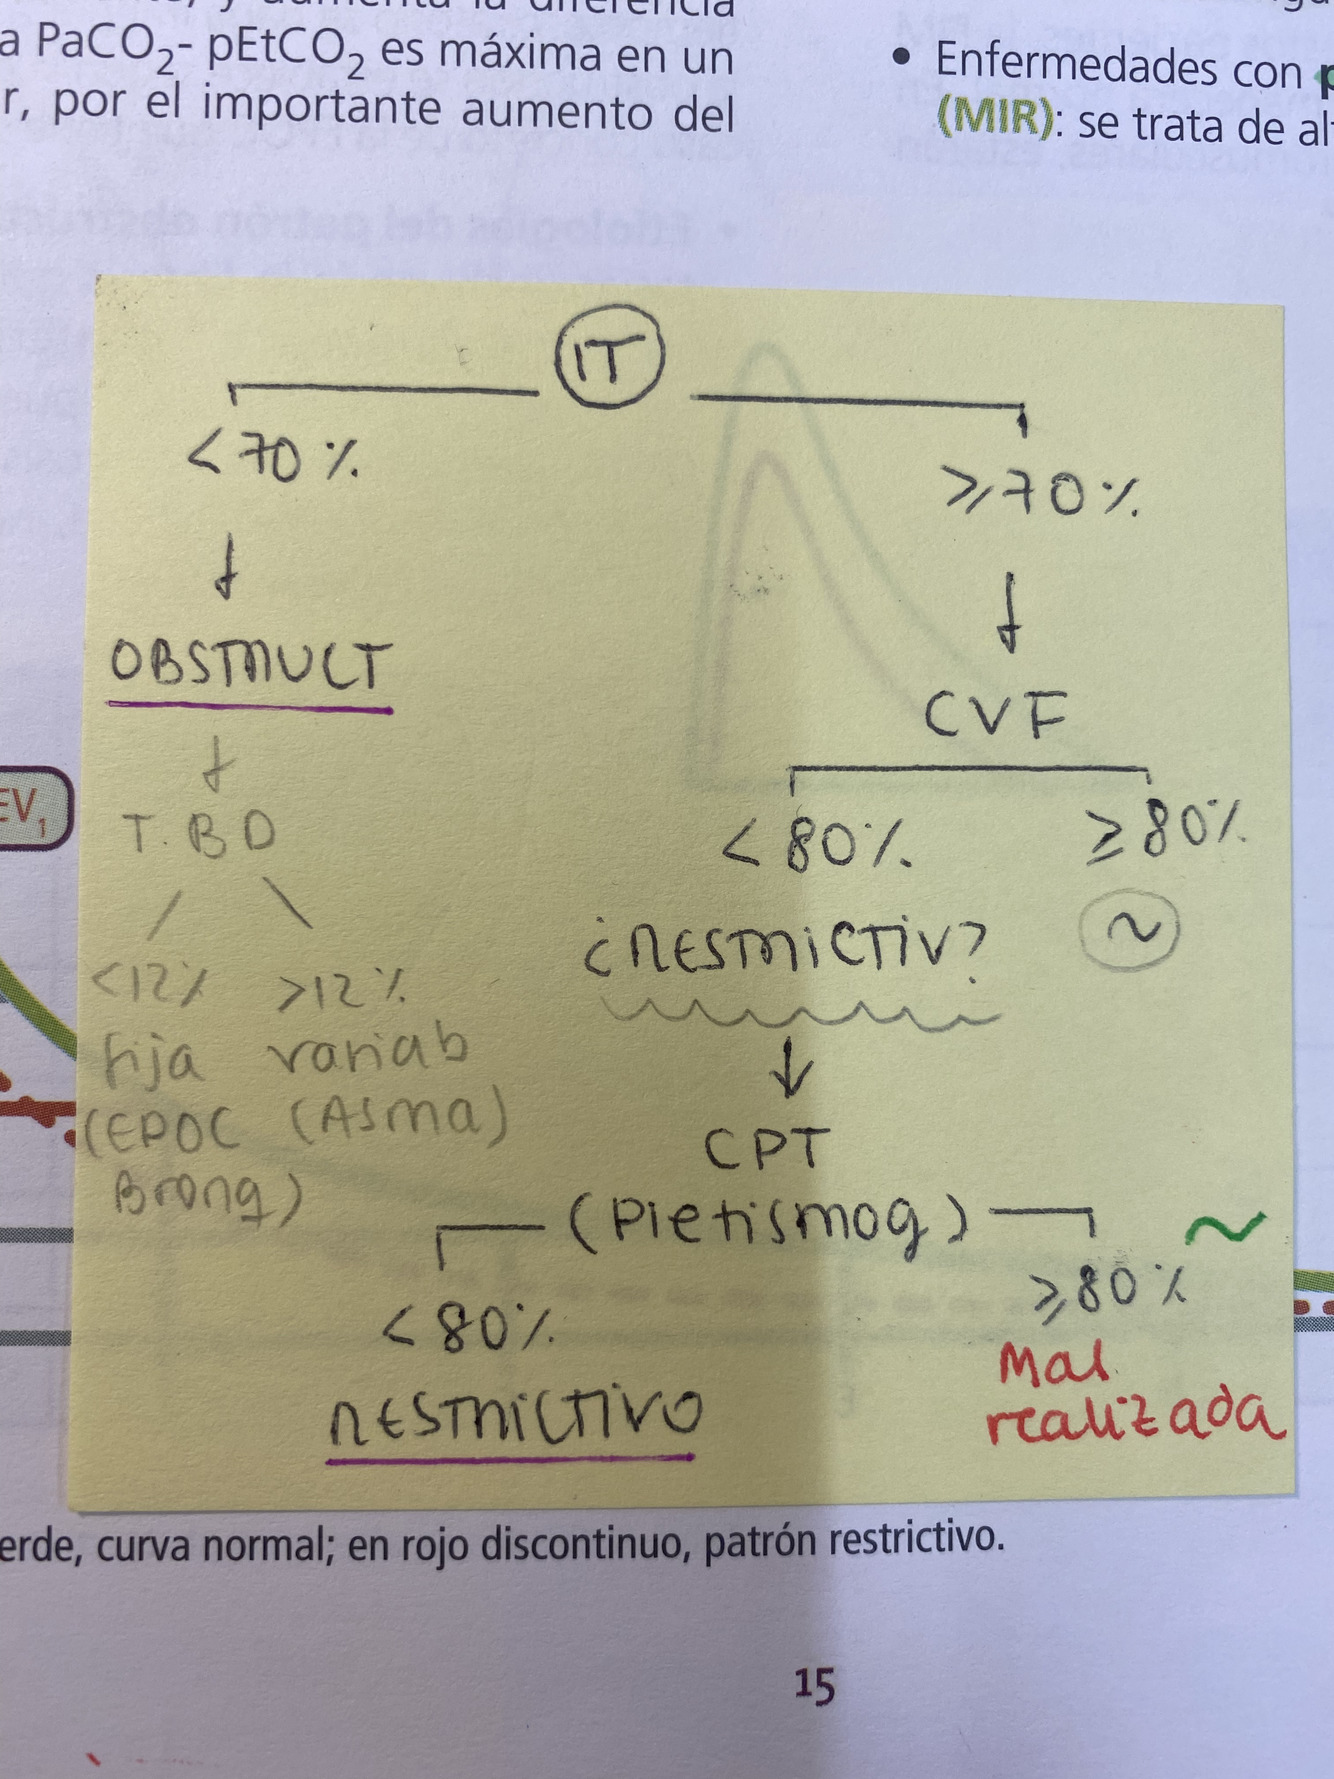 a PaCO₂- pEtCO₂ es máxima en un
r, por el importante aumento del
• Enfermedades con p
(MIR): se trata de al
IT
<70%
≥70%
OBSTRUCT
CVF
T.BD
<80%
≥80%
<12%
>12%
fija
variab
(EPOC
(Asma)
Bronq)
¿RESTRICTIV?
~
CPT
(Pletismog)
~
<80%
≥80%
RESTRICTIVO
Mal
realizada
EV₁
erde, curva normal; en rojo discontinuo, patrón restrictivo.
15